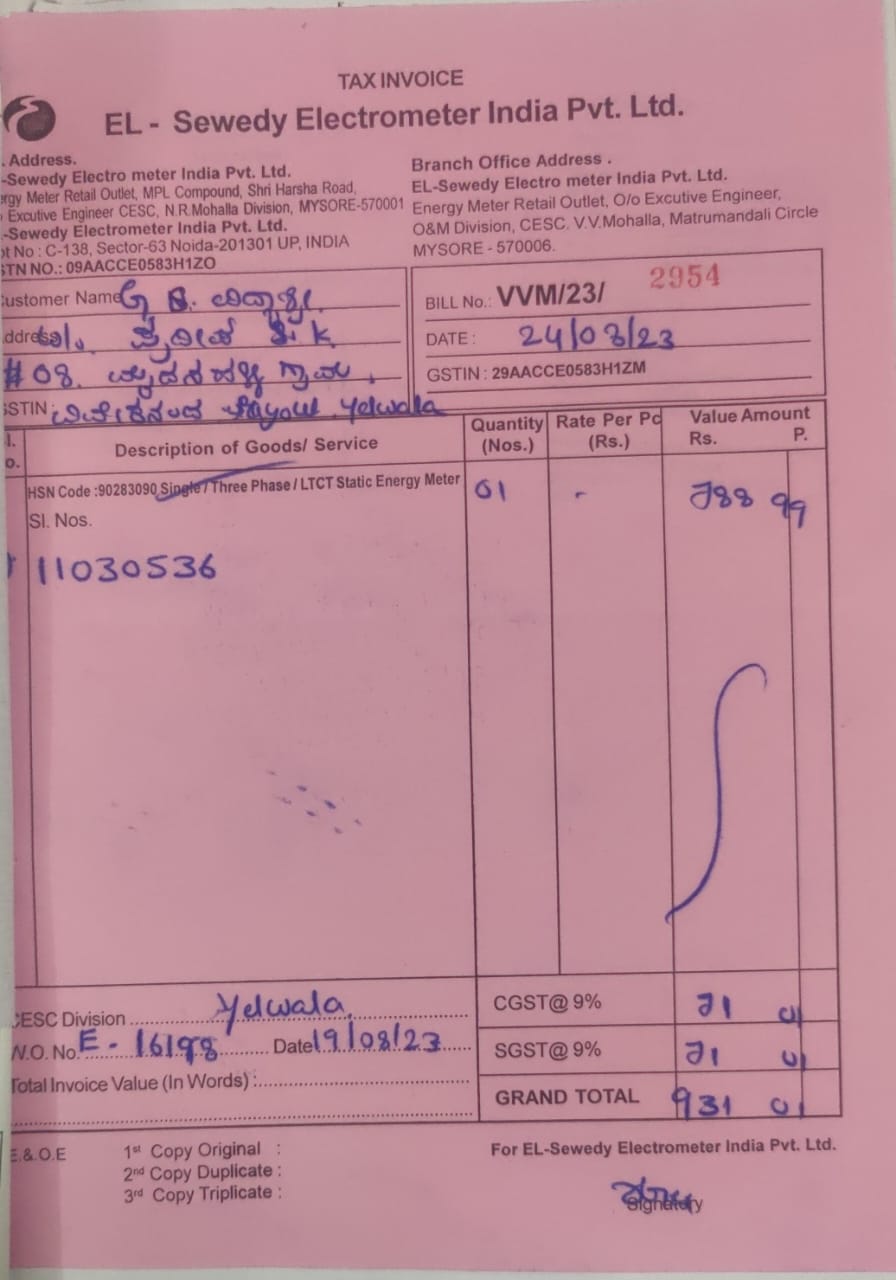 TAX INVOICE
EL - Sewedy Electrometer India Pvt. Ltd.
. Address.
-Sewedy Electro meter India Pvt. Ltd.
ergy Meter Retail Outlet, MPL Compound, Shri Harsha Road,
Excutive Engineer CESC, N.R.Mohalla Division, MYSORE-570001
-Sewedy Electrometer India Pvt. Ltd.
ot No : C-138, Sector-63 Noida-201301 UP, INDIA
STN NO.: 09AACCE0583H1ZO
Branch Office Address .
EL-Sewedy Electro meter India Pvt. Ltd.
Energy Meter Retail Outlet, O/o Excutive Engineer,
O&M Division, CESC. V.V.Mohalla, Matrumandali Circle
MYSORE - 570006.
ustomer Name
ddress
#08.
GSTIN : Yelwala
BILL No.: VVM/23/ 2954
DATE : 24/08/23
GSTIN : 29AACCE0583H1ZM
l. o. Description of Goods/ Service Quantity (Nos.) Rate Per Pc (Rs.) Value Amount Rs. P.
HSN Code :90283090 Single / Three Phase / LTCT Static Energy Meter 01 - 788 99
Sl. Nos.
11030536
CESC Division Yelwala
W.O. No. E - 16198 Date 19/08/23
Total Invoice Value (In Words) :
CGST@ 9% 71 01
SGST@ 9% 71 01
GRAND TOTAL 931 01
E.&.O.E
1st Copy Original :
2nd Copy Duplicate :
3rd Copy Triplicate :
For EL-Sewedy Electrometer India Pvt. Ltd.
Signatury